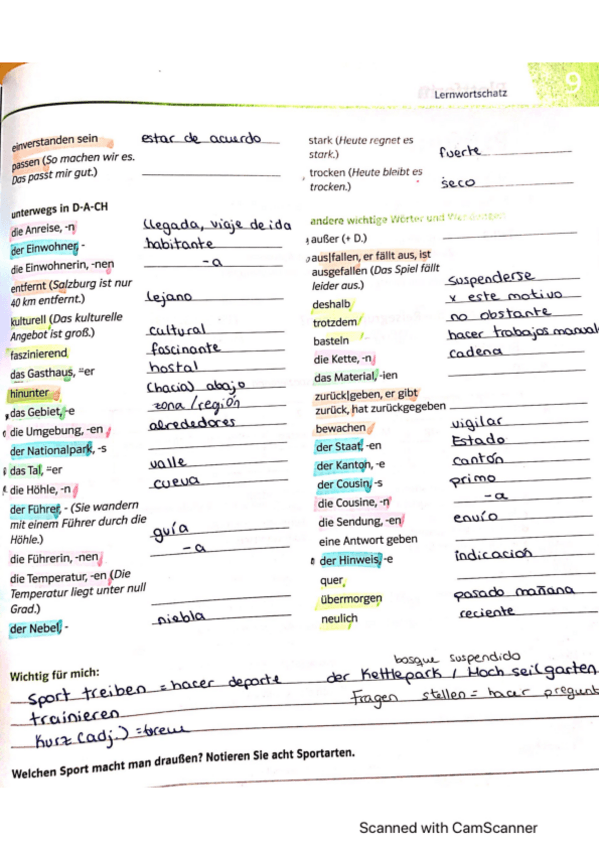 Lernwortschatz
9
einverstanden sein estar de acuerdo
passen (So machen wir es.
Das passt mir gut.)
unterwegs in D-A-CH
die Anreise, -n llegada, viaje de ida
der Einwohner, - habitante
die Einwohnerin, -nen -a
entfernt (Salzburg ist nur
40 km entfernt.) lejano
kulturell (Das kulturelle
Angebot ist groß.) cultural
faszinierend fascinante
das Gasthaus, ⸚er hostal
hinunter (hacia) abajo
das Gebiet, -e zona/región
die Umgebung, -en alrededores
der Nationalpark, -s
das Tal, ⸚er valle
die Höhle, -n cueva
der Führer, - (Sie wandern
mit einem Führer durch die
Höhle.) guía
die Führerin, -nen -a
die Temperatur, -en (Die
Temperatur liegt unter null
Grad.)
der Nebel, - niebla
stark (Heute regnet es
stark.) fuerte
trocken (Heute bleibt es
trocken.) seco
andere wichtige Wörter und
außer (+ D.)
aus|fallen, er fällt aus, ist
ausgefallen (Das Spiel fällt
leider aus.) suspenderse
deshalb x este motivo
trotzdem no obstante
basteln hacer trabajos manual
die Kette, -n cadena
das Material, -ien
zurück|geben, er gibt
zurück, hat zurückgegeben
bewachen vigilar
der Staat, -en Estado
der Kanton, -e cantón
der Cousin, -s primo
die Cousine, -n -a
die Sendung, -en envío
eine Antwort geben
der Hinweis, -e indicacion
quer
übermorgen pasado mañana
neulich reciente
Wichtig für mich:
bosque suspendido
Sport treiben = hacer deporte der Kettlepark / Hoch seilgarten
trainieren Fragen stellen = hacer pregunt
Kurz (adj.) = breve
Welchen Sport macht man draußen? Notieren Sie acht Sportarten.
Scanned with CamScanner